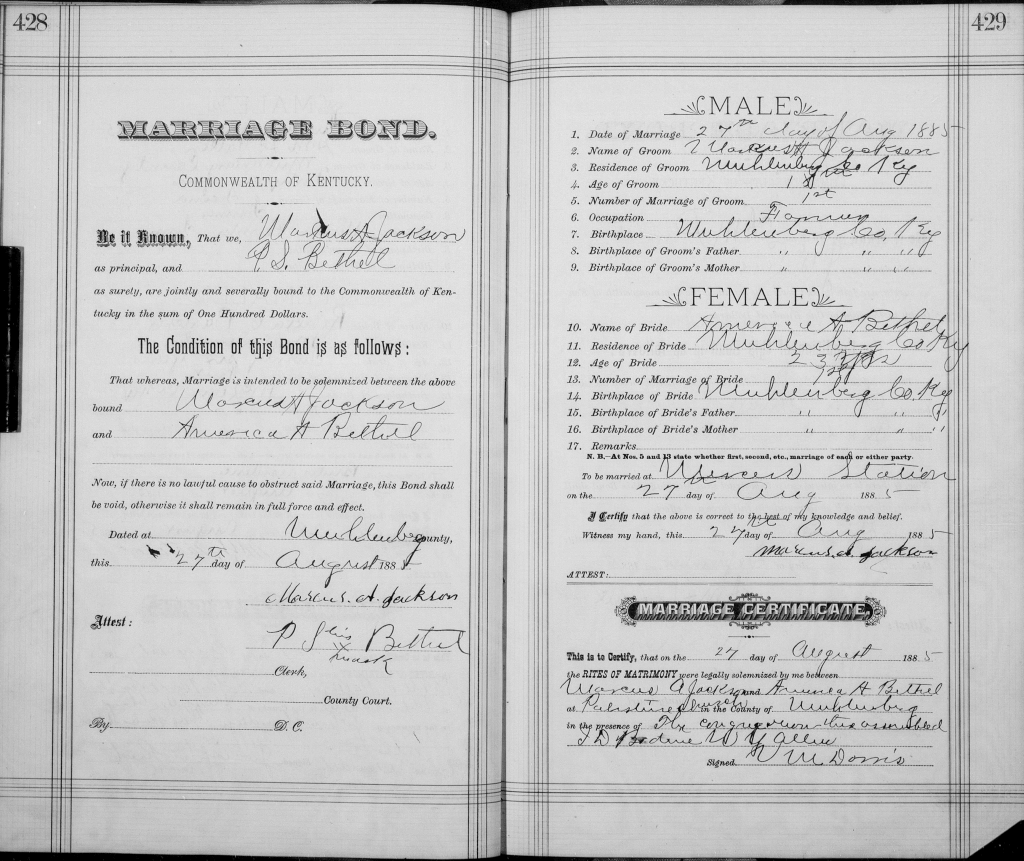 428
MARRIAGE BOND.
COMMONWEALTH OF KENTUCKY.
Be it Known, That we, Marcus A Jackson
as principal, and P S. Bethel
as surety, are jointly and severally bound to the Commonwealth of Ken-
tucky in the sum of One Hundred Dollars.
The Condition of this Bond is as follows:
That whereas, Marriage is intended to be solemnized between the above
bound Marcus A Jackson
and America A. Bethel
Now, if there is no lawful cause to obstruct said Marriage, this Bond shall
be void, otherwise it shall remain in full force and effect.
Dated at Muhlenberg County,
this 27th day of August 1885
Marcus. A. Jackson
Attest:
P S his Bethel
x
mark
Clerk,
County Court.
By D. C.
429
MALE
1. Date of Marriage 27th day of Aug 1885
2. Name of Groom Marcus A Jackson
3. Residence of Groom Muhlenberg Co Ky
4. Age of Groom
5. Number of Marriage of Groom 1st
6. Occupation Farmer
7. Birthplace Muhlenberg Co, Ky
8. Birthplace of Groom's Father " " " "
9. Birthplace of Groom's Mother " " " "
FEMALE
10. Name of Bride America A Bethel
11. Residence of Bride Muhlenberg Co Ky
12. Age of Bride 23 yrs
13. Number of Marriage of Bride 1st
14. Birthplace of Bride Muhlenberg Co. Ky
15. Birthplace of Bride's Father " " "
16. Birthplace of Bride's Mother " " "
17. Remarks
N. B.—At Nos. 5 and 13 state whether first, second, etc., marriage of each or either party.
To be married at Station
on the 27 day of Aug 1885
I Certify that the above is correct to the best of my knowledge and belief.
Witness my hand, this 27th day of Aug 1885
Marcus. A. Jackson
ATTEST:
MARRIAGE CERTIFICATE.
This is to Certify, that on the 27 day of August 1885
the RITES OF MATRIMONY were legally solemnized by me between
Marcus A Jackson and America A Bethel
at Palestine church in the County of Muhlenberg
in the presence of The congregation thus assembled
J D W Y Allen
Signed. V M Dorris